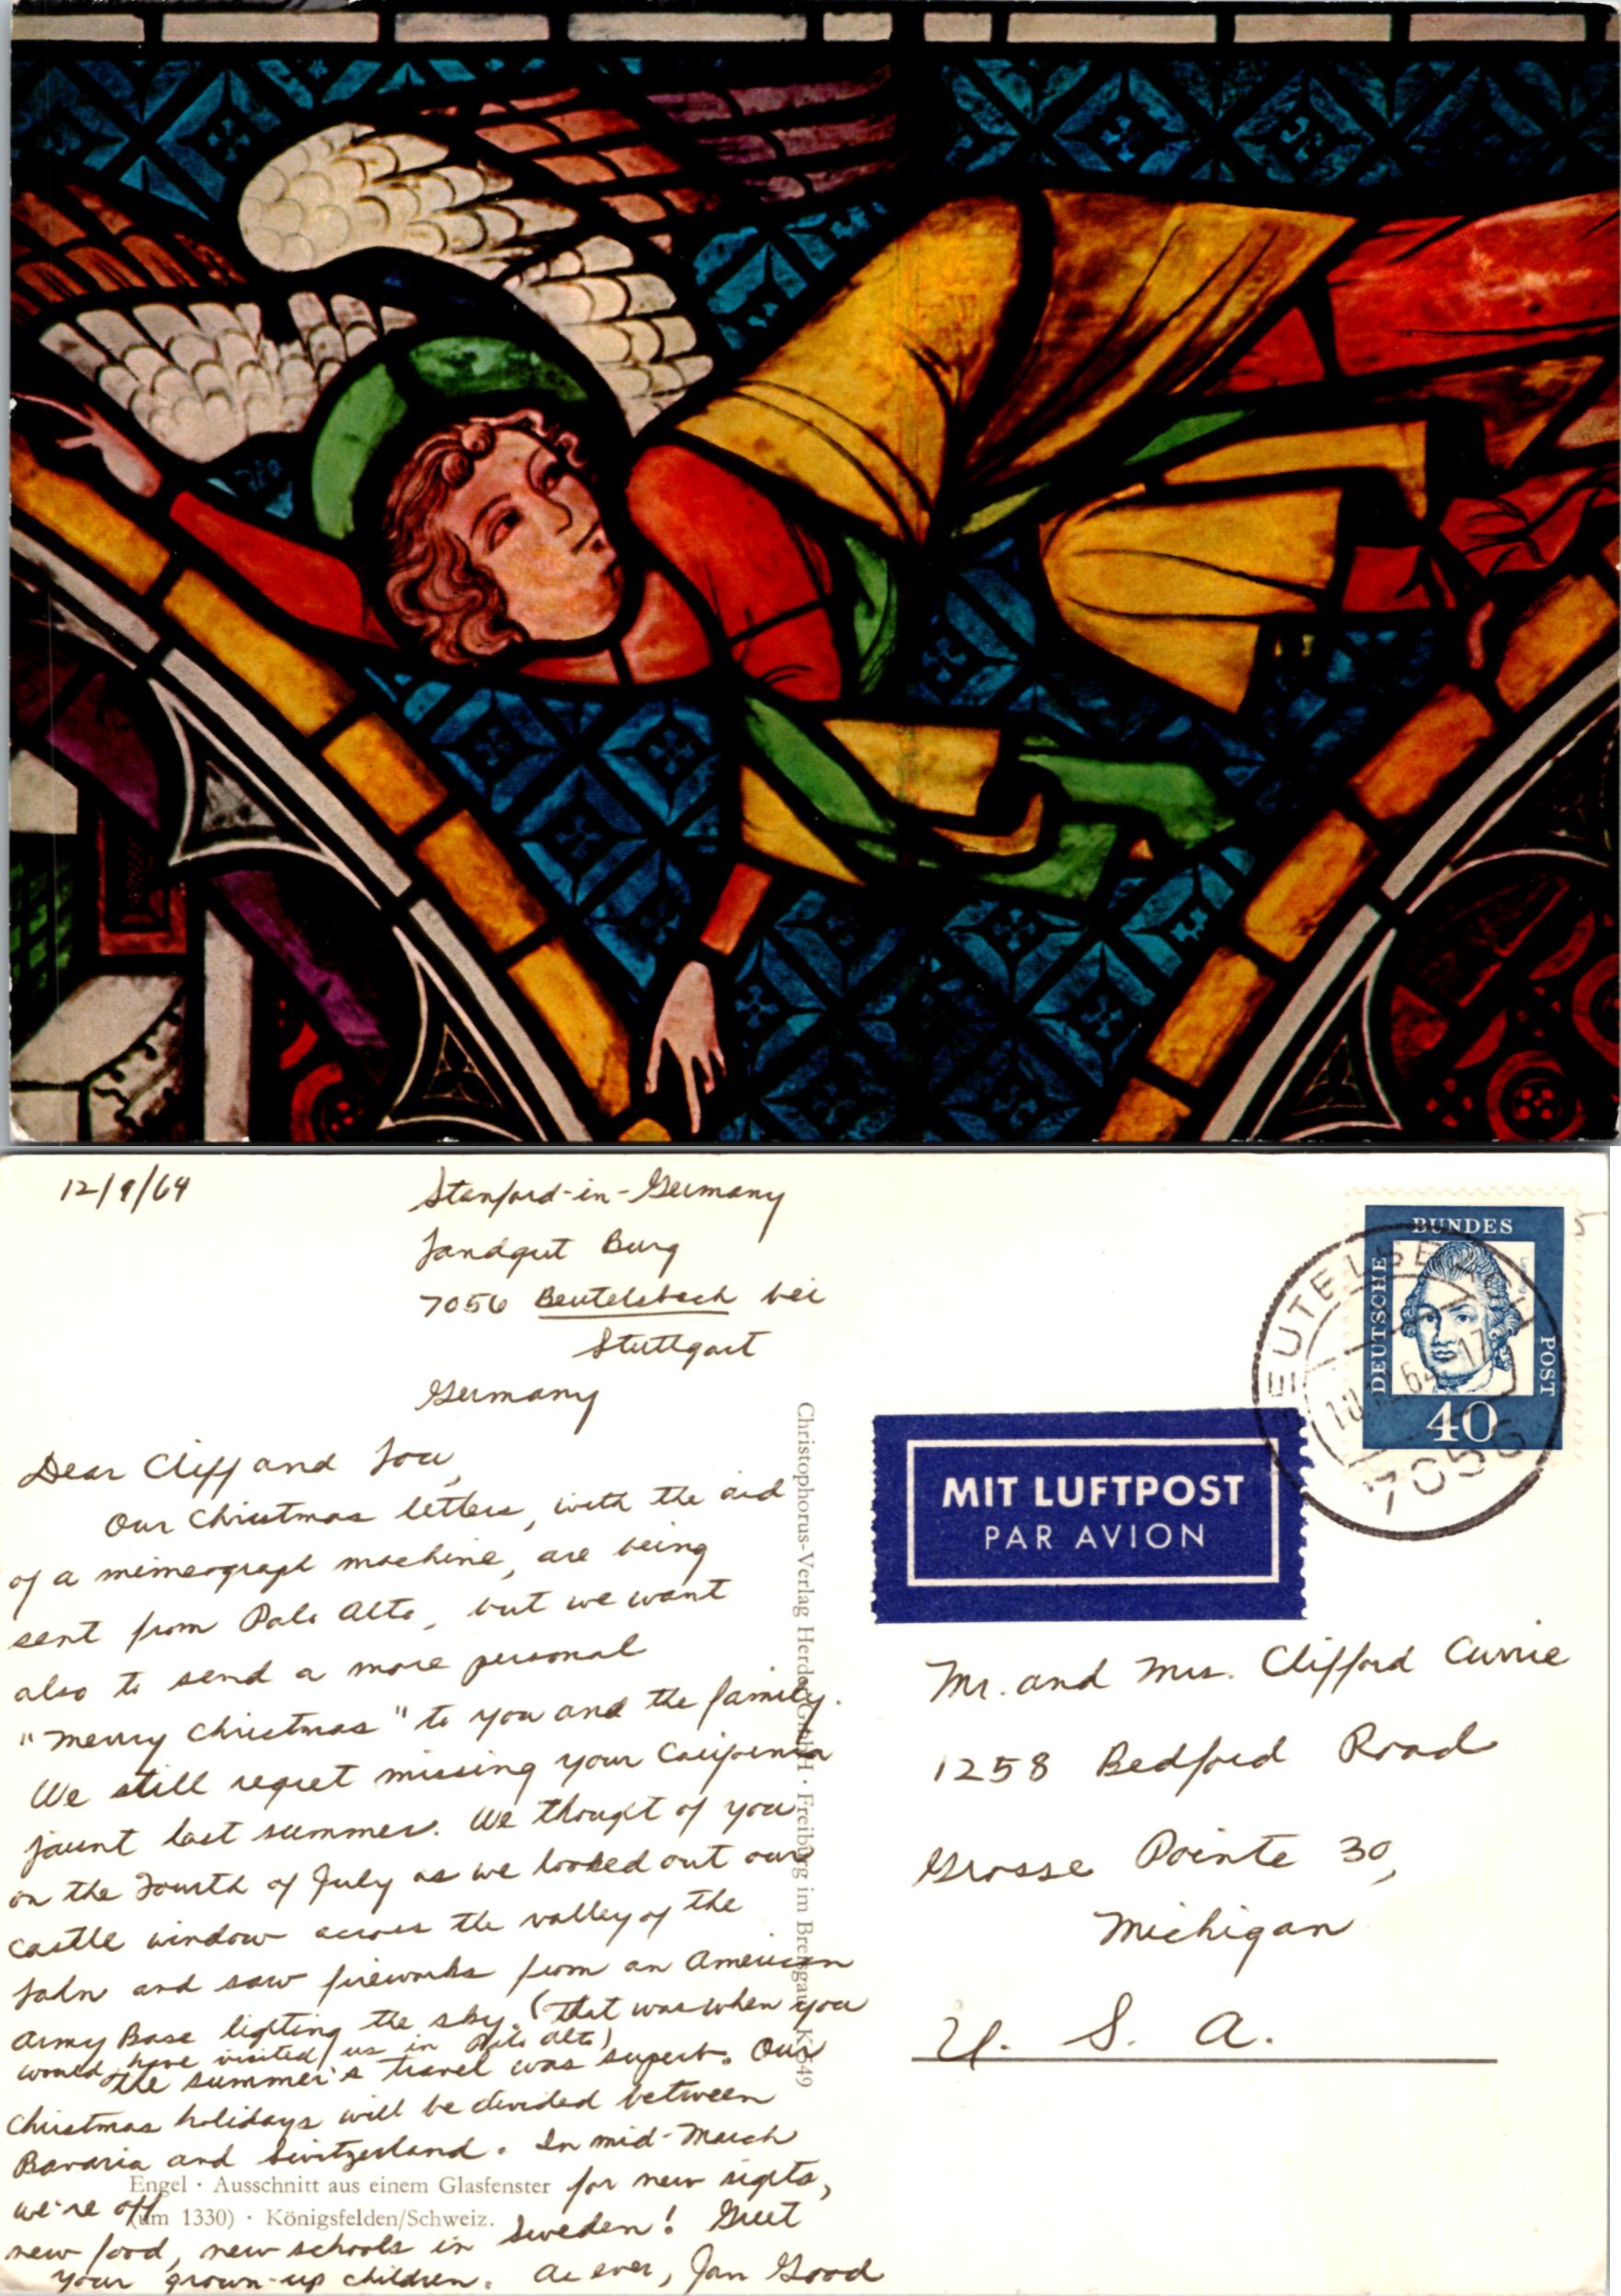 12/9/64
Stanford-in-Germany
Landgut Burg
7056 Beutelsbach bei
Stuttgart
Germany
Dear Cliff and Lou,
Our Christmas letters, with the aid
of a mimeograph machine, are being
sent from Palo Alto, but we want
also to send a more personal
"Merry Christmas" to you and the family.
We still regret missing your California
jaunt last summer. We thought of you
on the Fourth of July as we looked out our
castle window across the valley of the
and saw fireworks from an American
Army Base lighting the sky. (That was when you
would have visited us in Palo Alto)
The summer's travel was superb. Our
Christmas holidays will be divided between
Bavaria and Switzerland. In mid-March
we're off for new sights,
new food, new schools in Sweden! Greet
your grown-up children. As ever, Jan Good
Engel · Ausschnitt aus einem Glasfenster
(um 1330) · Königsfelden/Schweiz.
Christophorus-Verlag Herder GmbH · Freiburg im Breisgau
BUNDES
DEUTSCHE
POST
40
EUTELSB
7056
MIT LUFTPOST
PAR AVION
Mr. and Mrs. Clifford Currie
1258 Bedford Road
Grosse Pointe 30,
Michigan
U. S. A.